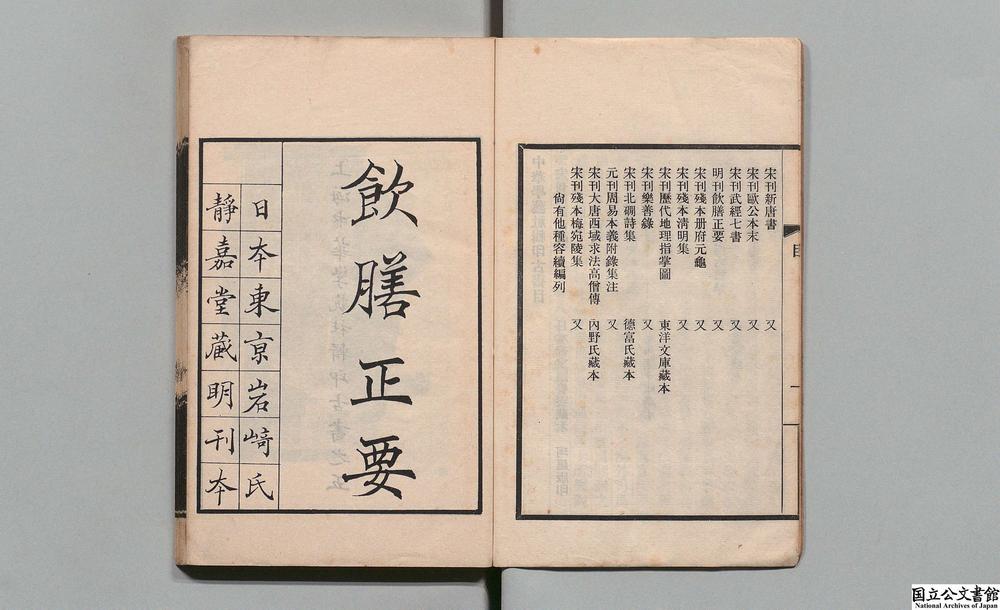 宋刊新唐書 又
宋刊歐公本末 又
宋刊武經七書 又
明刊飲膳正要 又
宋刊殘本册府元龜 又
宋刊殘本清明集 又
宋刊歷代地理指掌圖 東洋文庫藏本
宋刊樂善錄 又
宋刊北磵詩集 德富氏藏本
元刊周易本義附錄集注 又
宋刊大唐西域求法高僧傳 內野氏藏本
宋刊殘本梅宛陵集 又
尙有他種容續編列
目
一
飲膳正要
日本東亰岩﨑氏
靜嘉堂藏明刊本
国立公文書館
National Archives of Japan